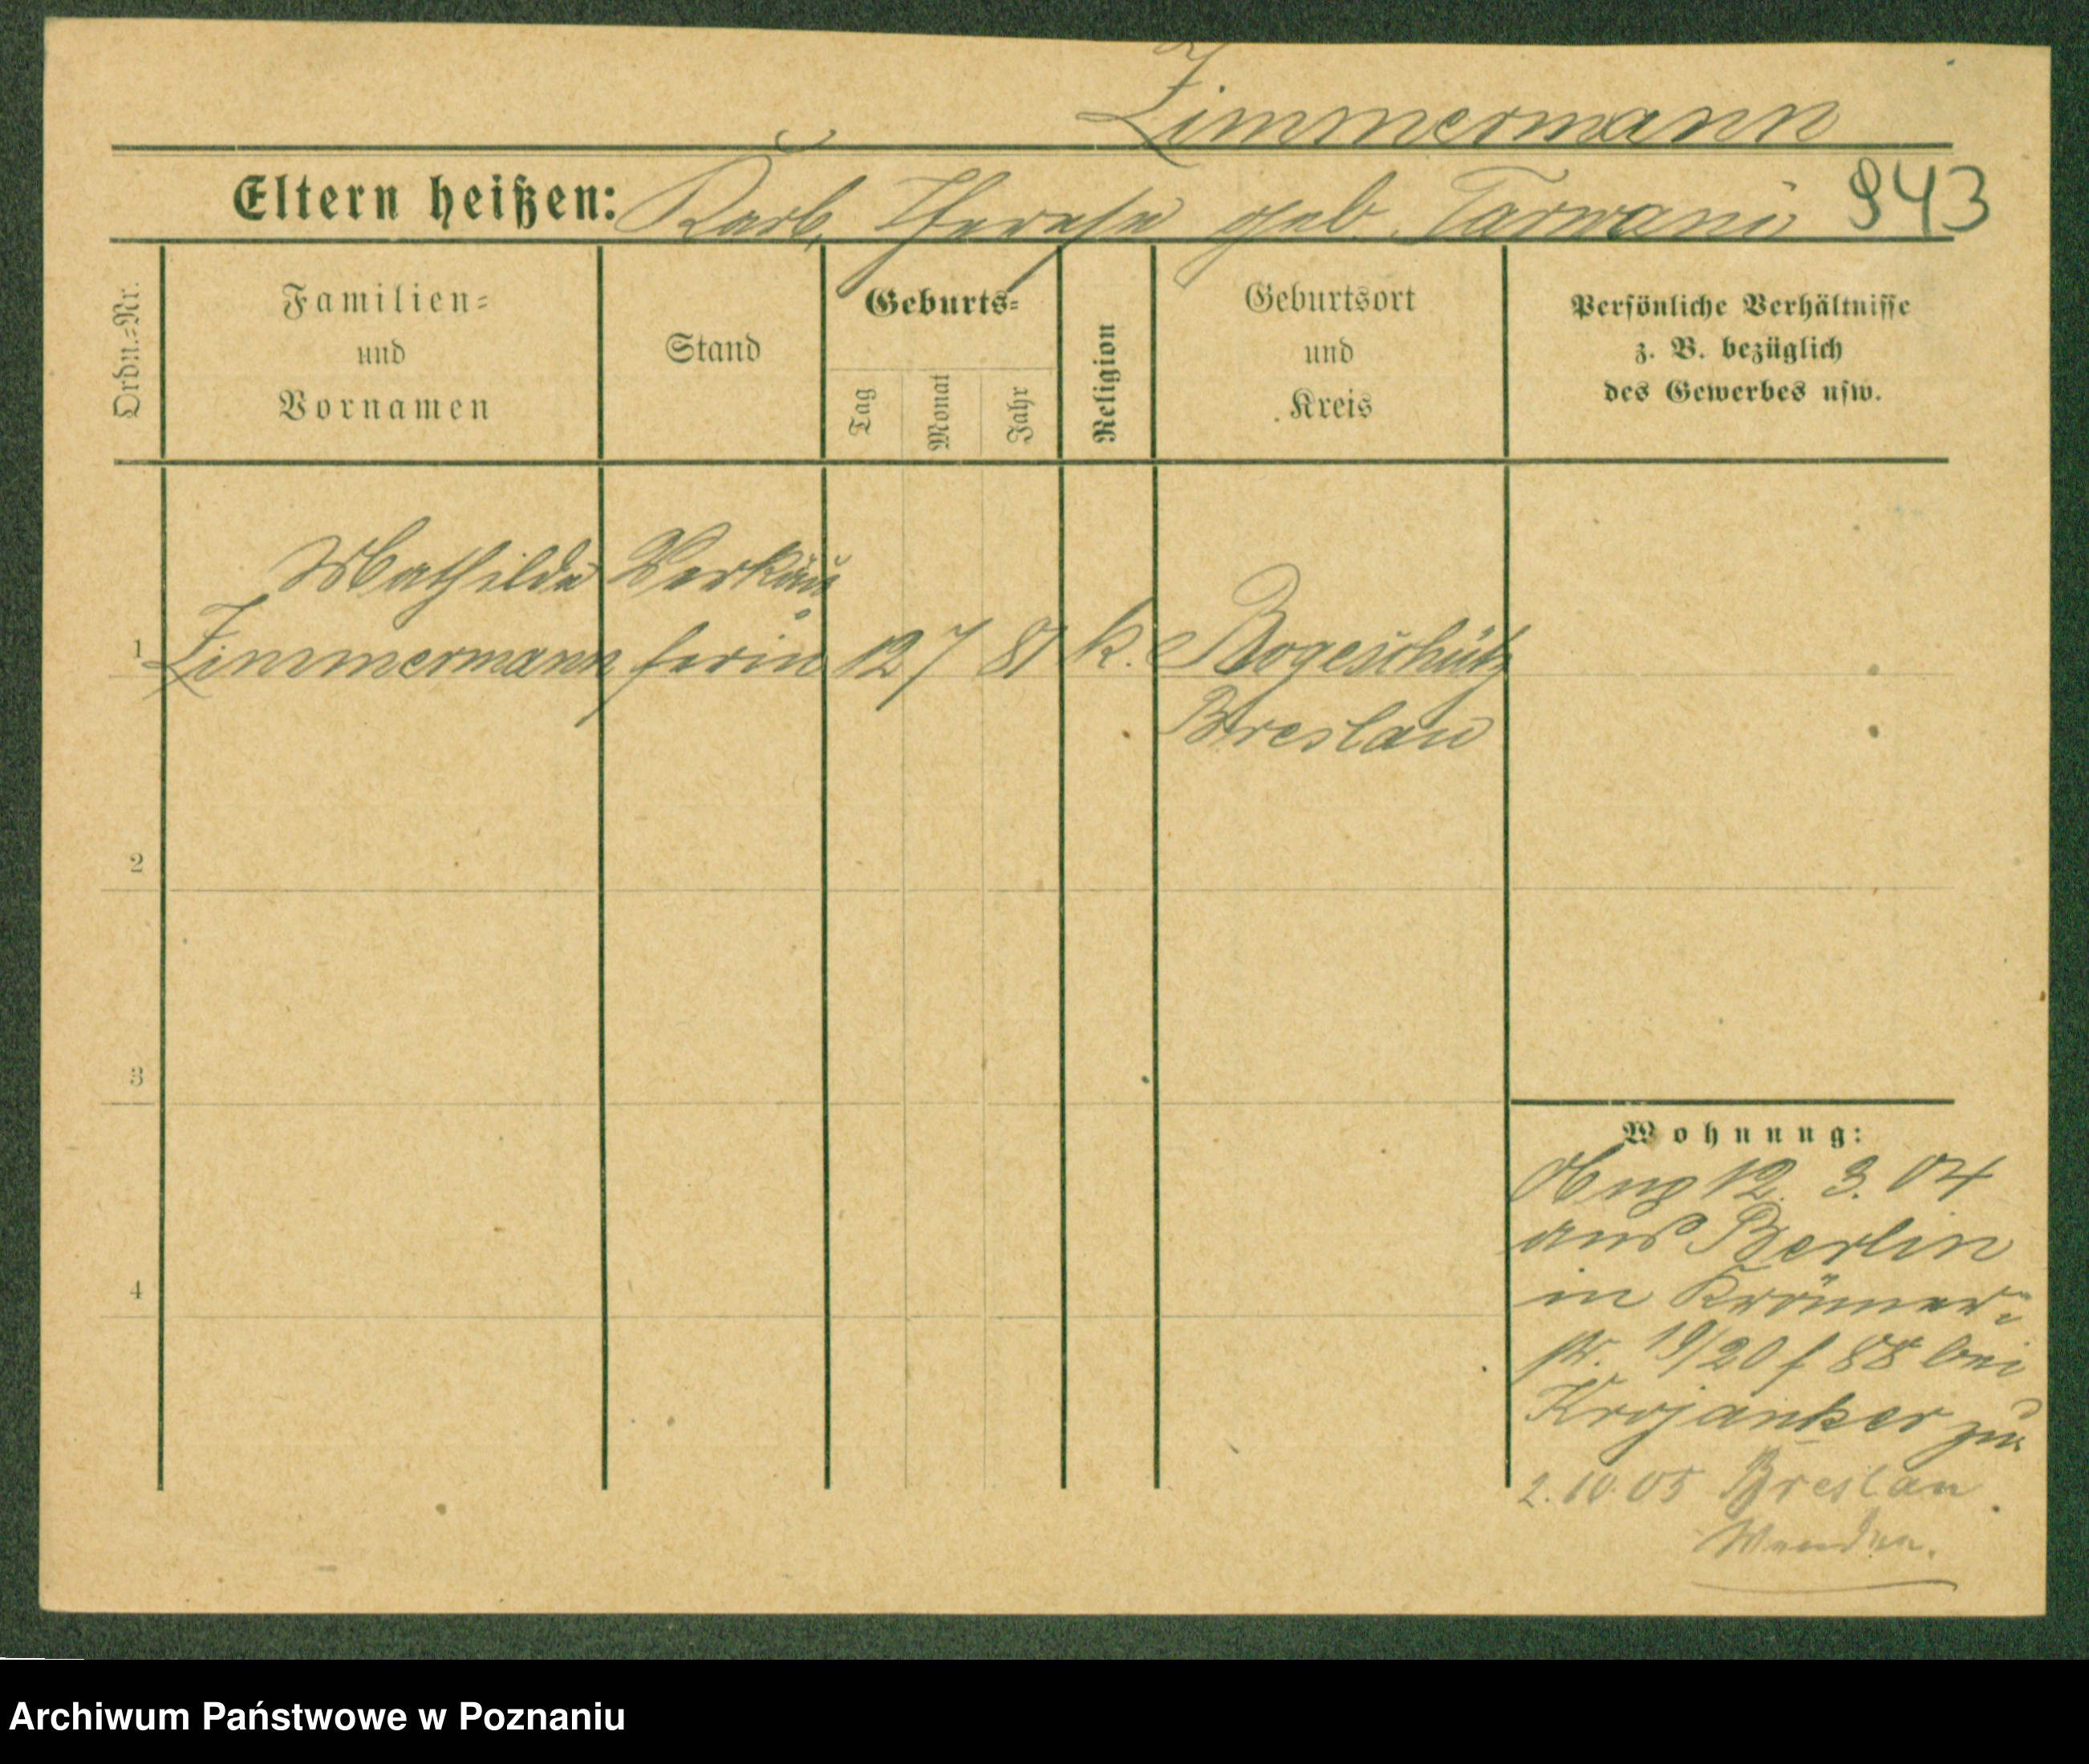 Zimmermann
Eltern heißen: Karl, Therese geb. Tarwani 943
Ordn.=Nr.
Familien=
und
Vornamen
Stand
Geburts=
Tag
Monat
Jahr
Religion
Geburtsort
und
Kreis
Persönliche Verhältnisse
z. B. bezüglich
des Gewerbes usw.
Mathilde Verkäu
1 Zimmermann ferin 12 7 81 k. Bogeschütz
Breslau
2
3
4
Wohnung:
12. 3. 04
aus Berlin
in Krämer=
str. 19/20 f 88 bei
Krojanker zu
2. 10. 05 Breslau
Archiwum Państwowe w Poznaniu